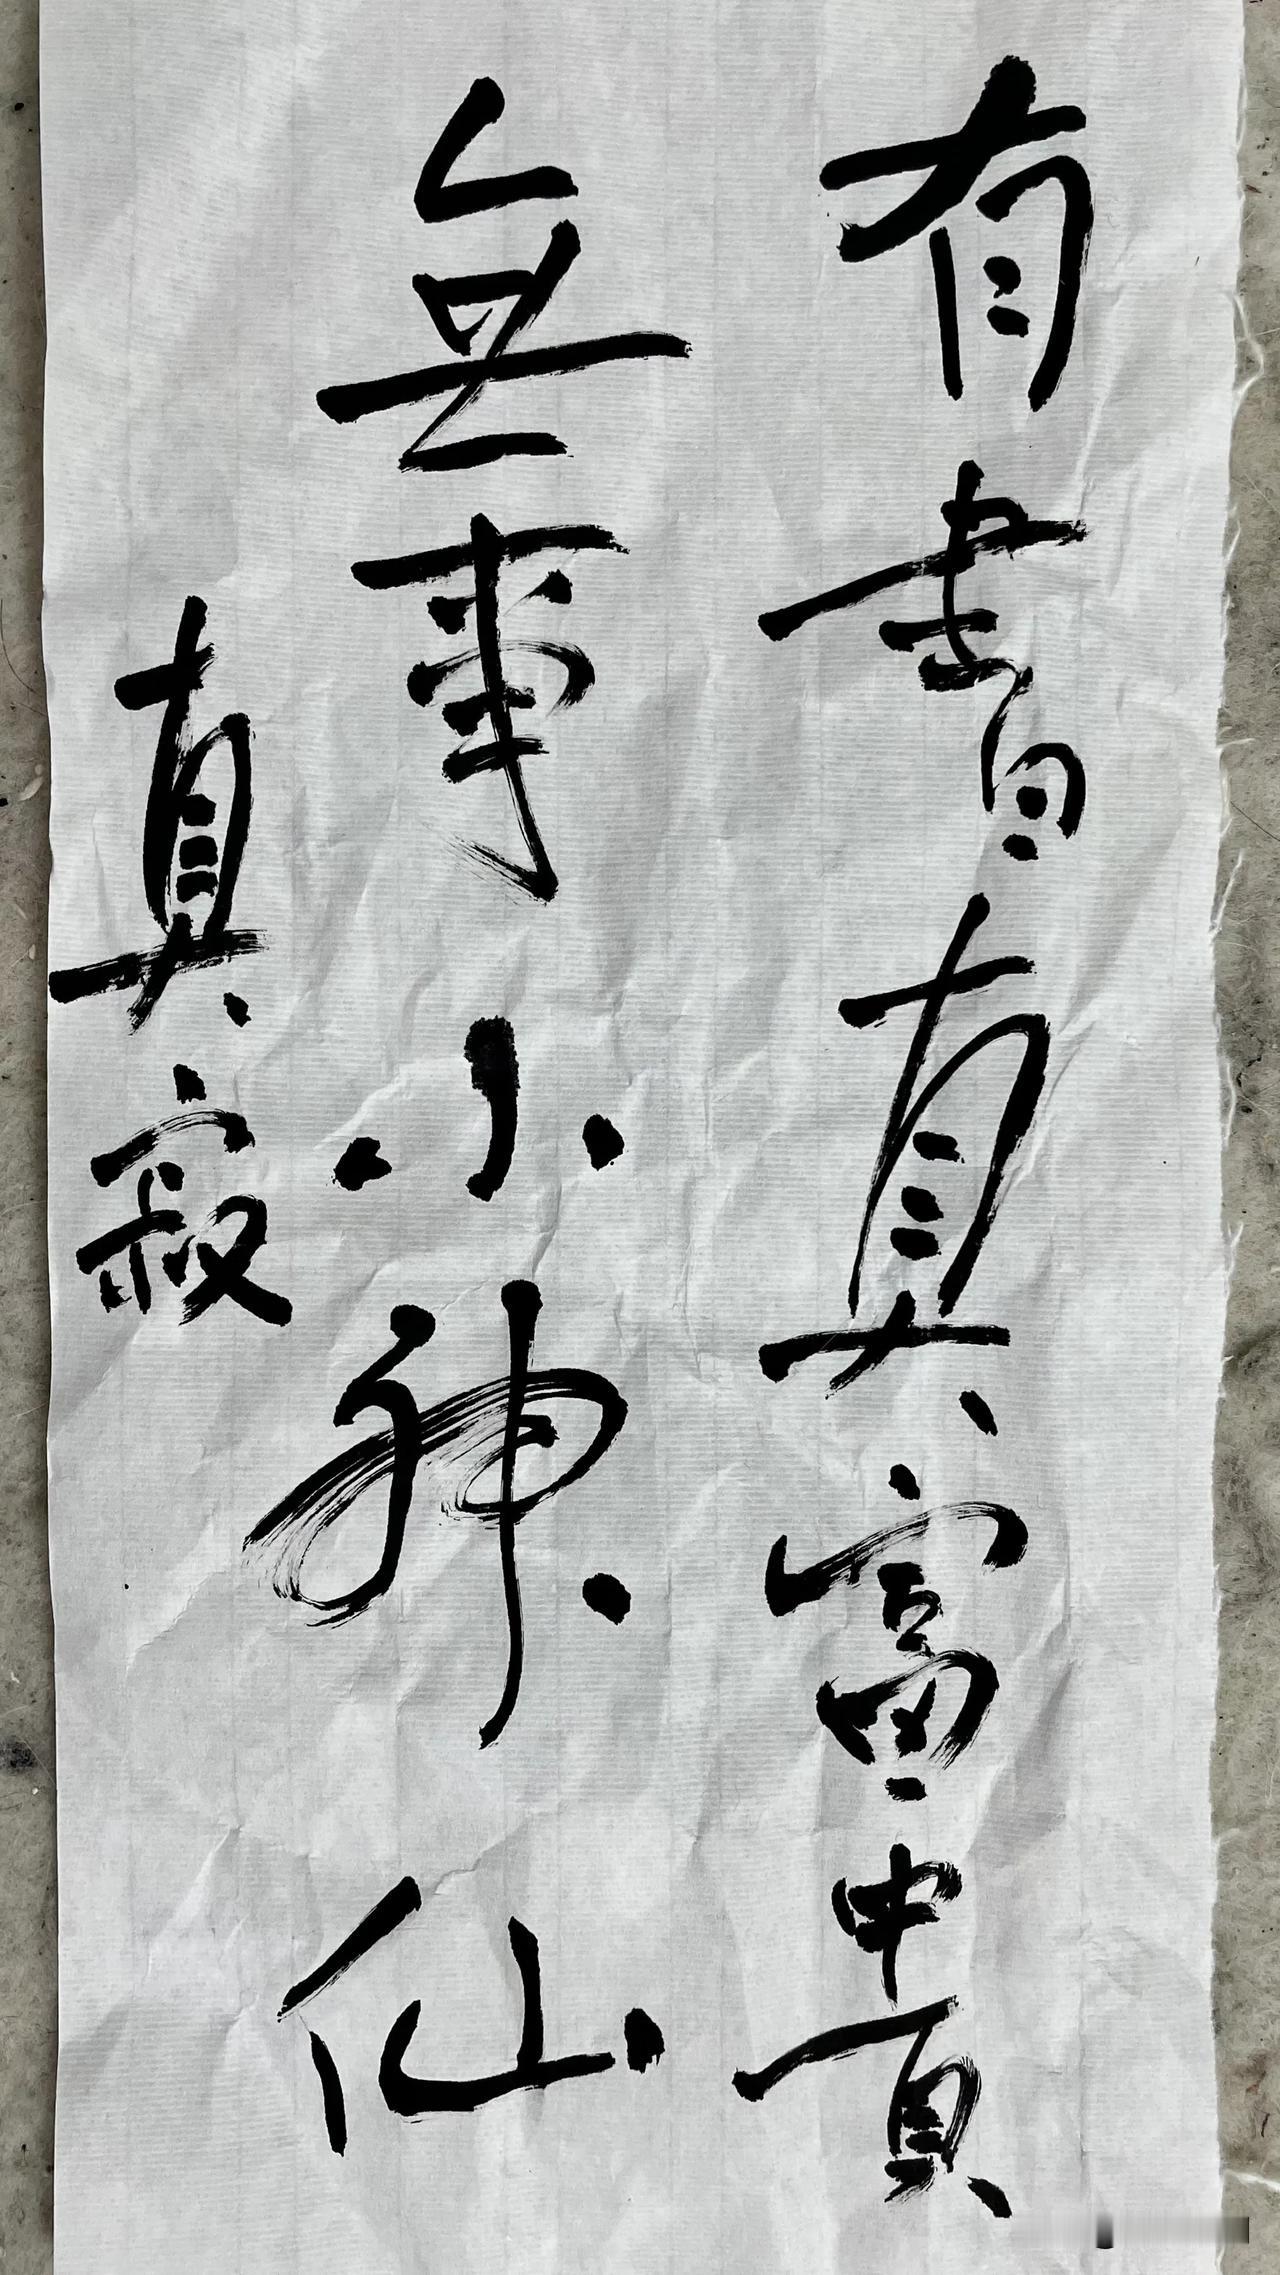 有書真富貴
無事小神仙
真寂